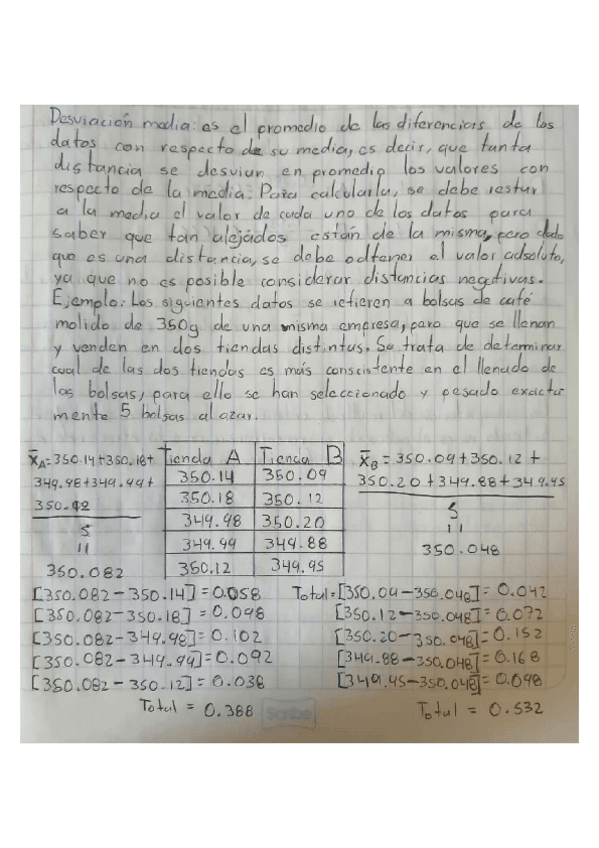 Desviación media: es el promedio de las diferencias de los
datos con respecto de su media, es decir, que tanta
distancia se desvian en promedio los valores con
respecto de la media. Para calcularla, se debe restar
a la media el valor de cada uno de los datos para
saber que tan alejados están de la misma, pero dado
que es una distancia, se debe odtener el valor adsoluto,
ya que no es posible considerar distancias negativas.
Ejemplo: Los siguientes datos se refieren a bolsas de café
molido de 350g de una misma empresa, pero que se llenan
y venden en dos tiendas distintas. Se trata de determinar
cual de las dos tiendas es más conscistente en el llenado de
las bolsas, para ello se han seleccionado y pesado exacta
mente 5 bolsas al azar.
X̄A = 350.14 + 350.18 +
349.98 + 349.99 +
350.12
5
=
350.082
Tienda A Tienda B
350.14 350.09
350.18 350.12
349.98 350.20
349.99 349.88
350.12 349.95
X̄B = 350.09 + 350.12 +
350.20 + 349.88 + 349.95
5
=
350.048
[350.082 - 350.14] = 0.058
[350.082 - 350.18] = 0.098
[350.082 - 349.98] = 0.102
[350.082 - 349.99] = 0.092
[350.082 - 350.12] = 0.038
Total = 0.388
Total = [350.09 - 350.048] = 0.042
[350.12 - 350.048] = 0.072
[350.20 - 350.048] = 0.152
[349.88 - 350.048] = 0.168
[349.95 - 350.048] = 0.098
Total = 0.532
Scribe